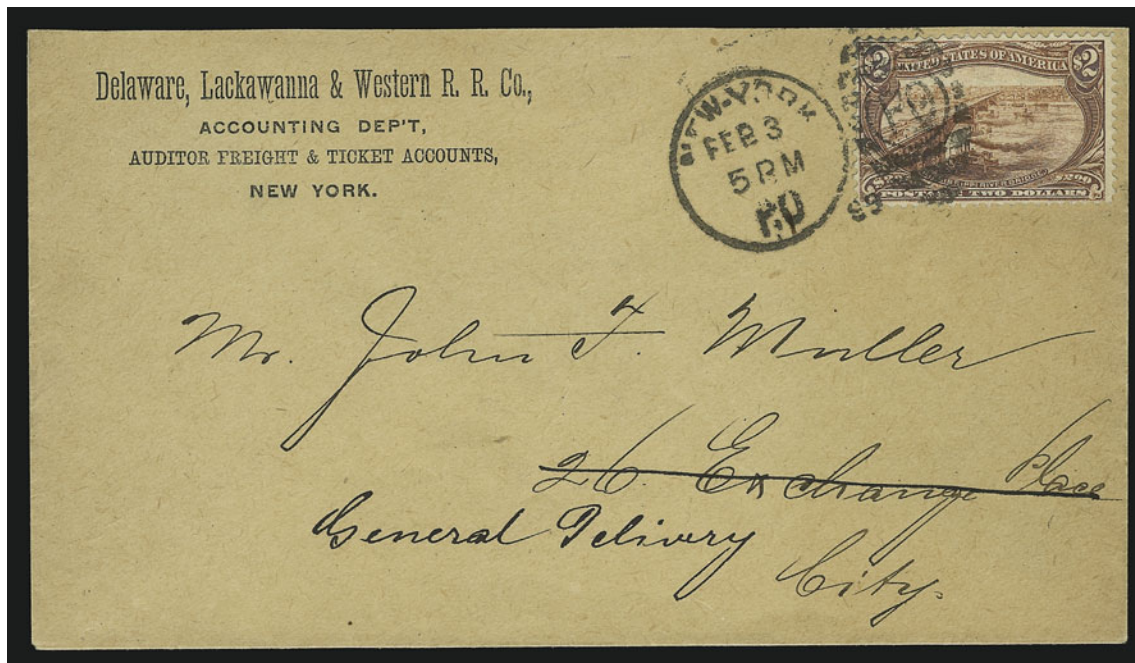 Delaware, Lackawanna & Western R. R. Co.,
ACCOUNTING DEP'T,
AUDITOR FREIGHT & TICKET ACCOUNTS,
NEW YORK.
NEW-YORK
FEB 3
5 PM
P.O
$2 UNITED STATES OF AMERICA $2
MISSISSIPPI RIVER BRIDGE
$2.00
POSTAGE TWO DOLLARS
Mr. John F. Muller
26 Exchange Place
General Delivery
City.